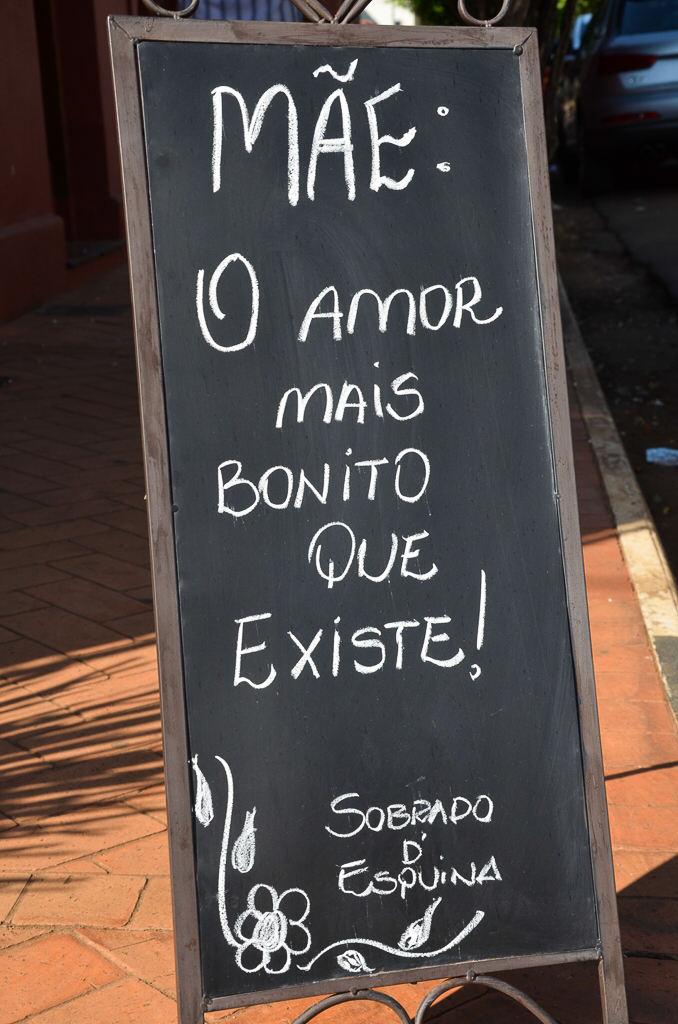 MÃE:
O AMOR
MAIS
BONITO
QUE
EXISTE!
SOBRADO
D'
ESQUINA